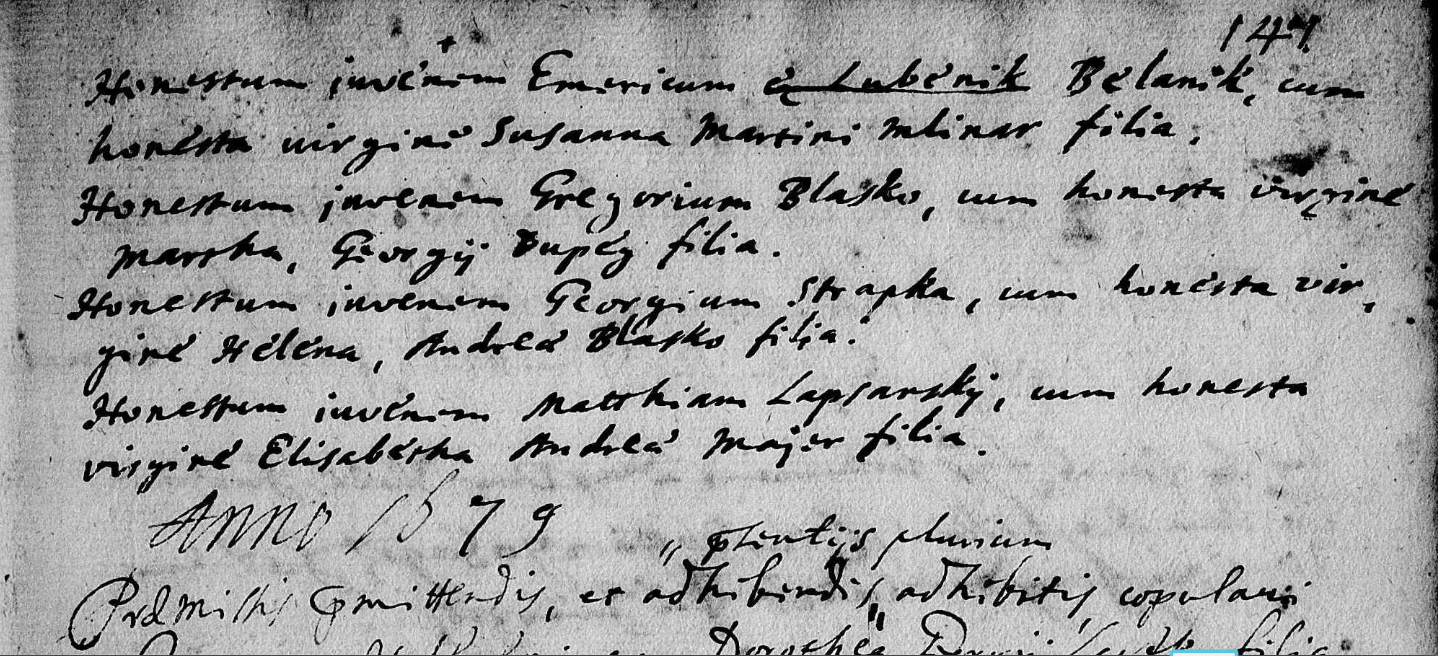 147
Honestum juvénem Emericum é Lubénik Bélanik, cum
honésta virginé Susanna Martini Mlinar filia.
Honestum juvenem Gregorium Blasko, cum honesta virginé
Martha, Georgij Dupéÿ filia.
Honestum juvenem Georgium Strapka, cum honésta vir,
giné Héléna, Andreá Blasko filia.
Honestum juvénem Matthiam Lapsarskÿ, cum honesta
virginé Elisabétha Andreá Majer filia.
Anno 1679
plurium
Præmissis et adhibendis, adhibitis, copulavi
Dorothéa filia